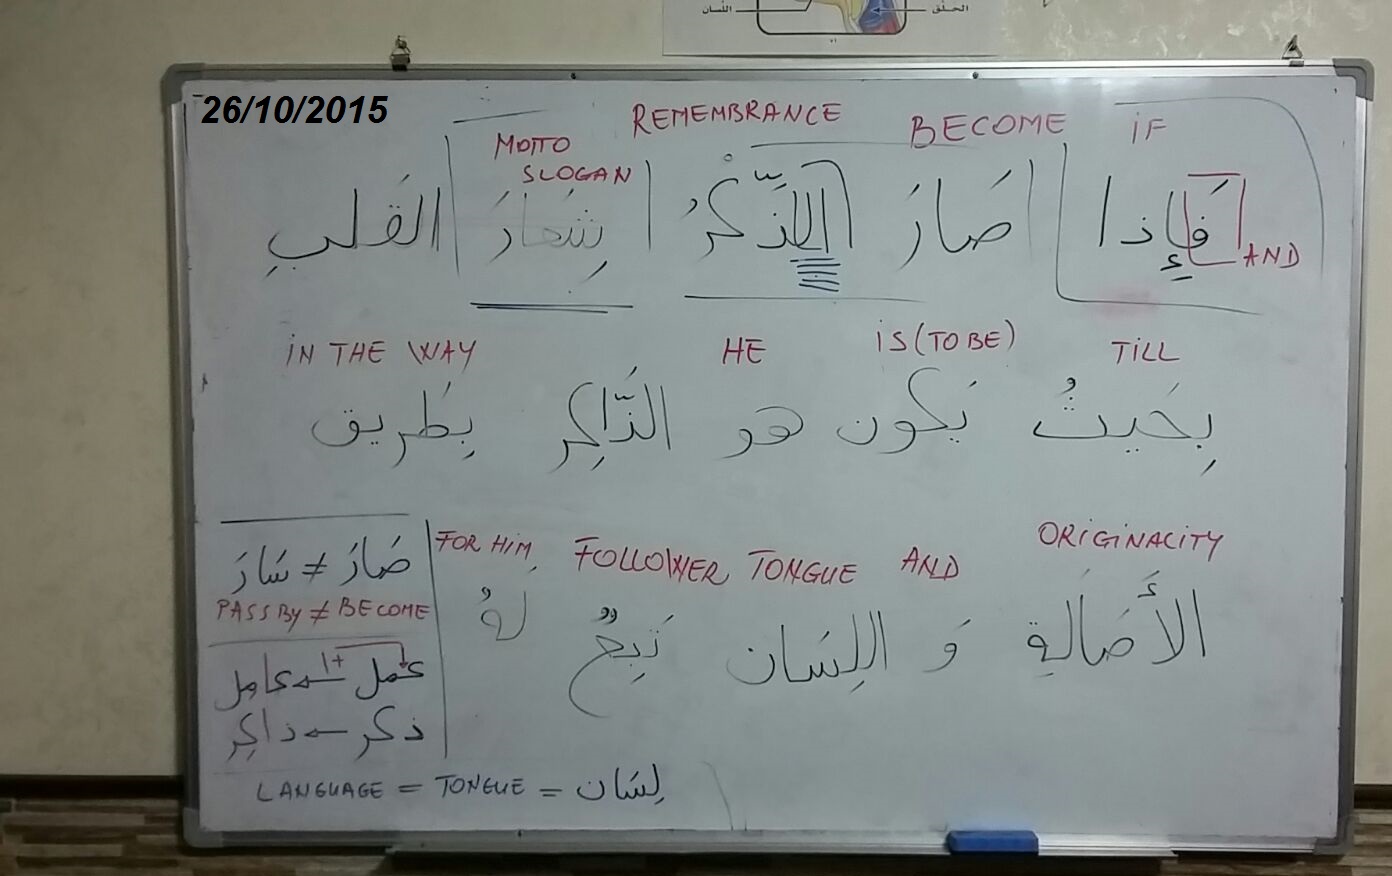 اللسان الحلق
26/10/2015
MOTTO SLOGAN REMEMBRANCE BECOME IF
فَإِذا صَارَ الذِّكْرُ شِعَارَ القَلبِ
AND
IN THE WAY HE IS (TO BE) TILL
بِحَيثُ يَكون هو الذَّاكِر بِطَريق
FOR HIM FOLLOWER TONGUE AND ORIGINACITY
الأَصَالَةِ وَ اللِسَان تَبِعٌ لَهُ
صَارَ ≠ سَارَ
PASS BY ≠ BECOME
عمل +ا ← عامِل
ذكر ← ذاكِر
LANGUAGE = TONGUE = لِسَان